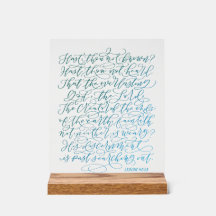 Hast thou not known?
Hast thou not heard
That the everlasting
God, the Lord,
The Creator of the ends
of the earth, fainteth
not, neither is weary?
His discernment
is past searching out.